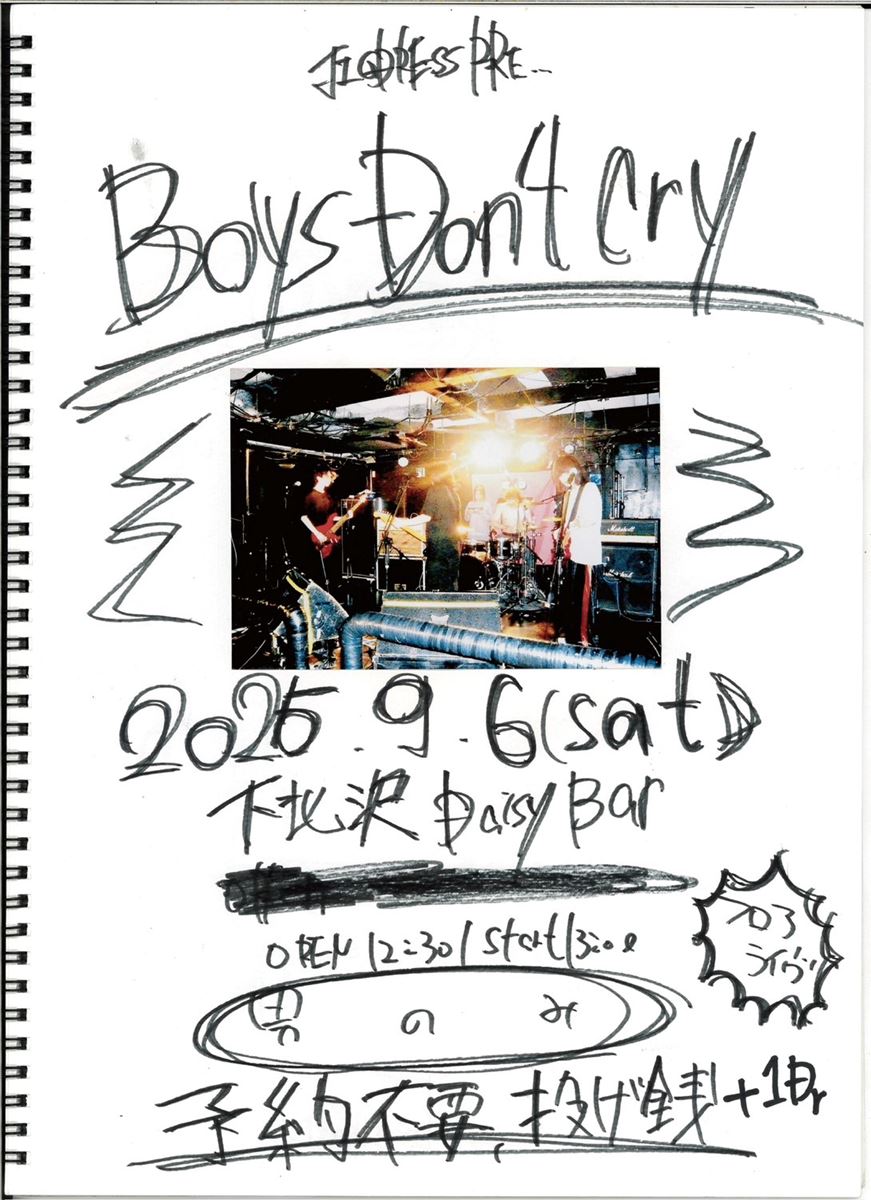 PRE...
Boys Don't Cry
Marshall
2025.9.6(sat)
下北沢 Daisy Bar
OPEN 12:30 / Start 13:00
フロア
ライヴ!
男のみ
予約不要、投げ銭+1Dr